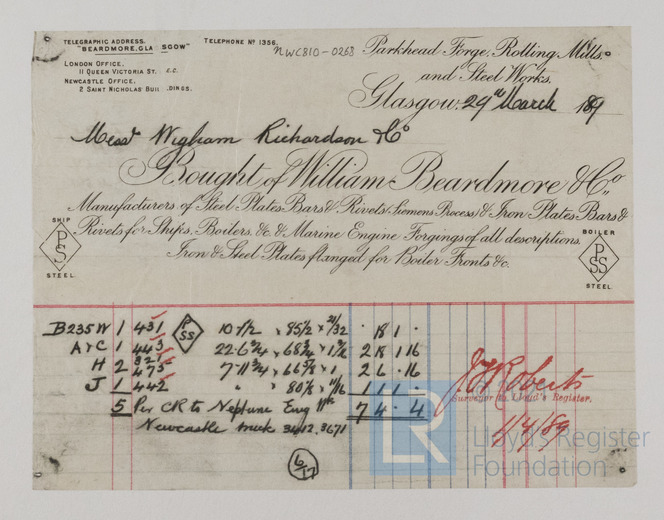 TELEGRAPHIC ADDRESS.
"BEARDMORE, GLASGOW"
TELEPHONE Nº 1356.
NWC810-0268
LONDON OFFICE.
11 QUEEN VICTORIA ST. E.C.
NEWCASTLE OFFICE.
2 SAINT NICHOLAS BUILDINGS.
Parkhead Forge, Rolling Mills
and Steel Works,
Glasgow, 29th March 189
Messrs Wigham Richardson & Co
Bought of William Beardmore & Co.,
Manufacturers of Steel Plates Bars & Rivets (Siemens Process) & Iron Plates Bars &
Rivets for Ships, Boilers, &c. & Marine Engine Forgings of all descriptions.
Iron & Steel Plates flanged for Boiler Fronts &c.
SHIP
PS
STEEL
BOILER
PSS
STEEL
B235W 1 431 PSS 10·1/2 × 85 1/2 × 21/32 · 18 1 ·
A & C 1 443 22·6 3/4 × 68 3/4 ×
H 2 321 475 7·11 3/4 × 66 5/8 × 1 2 6 · 16
J 1 442 " " 80 1/8 × 11/16 1 1 1 ·
5 Per CR to Neptune Eng Wks 7 4 · 4
Newcastle truck 3412.3671
6/17
Roberts
Surveyor to Lloyd's Register.
1/4/89
LR
Lloyd's Register
Foundation